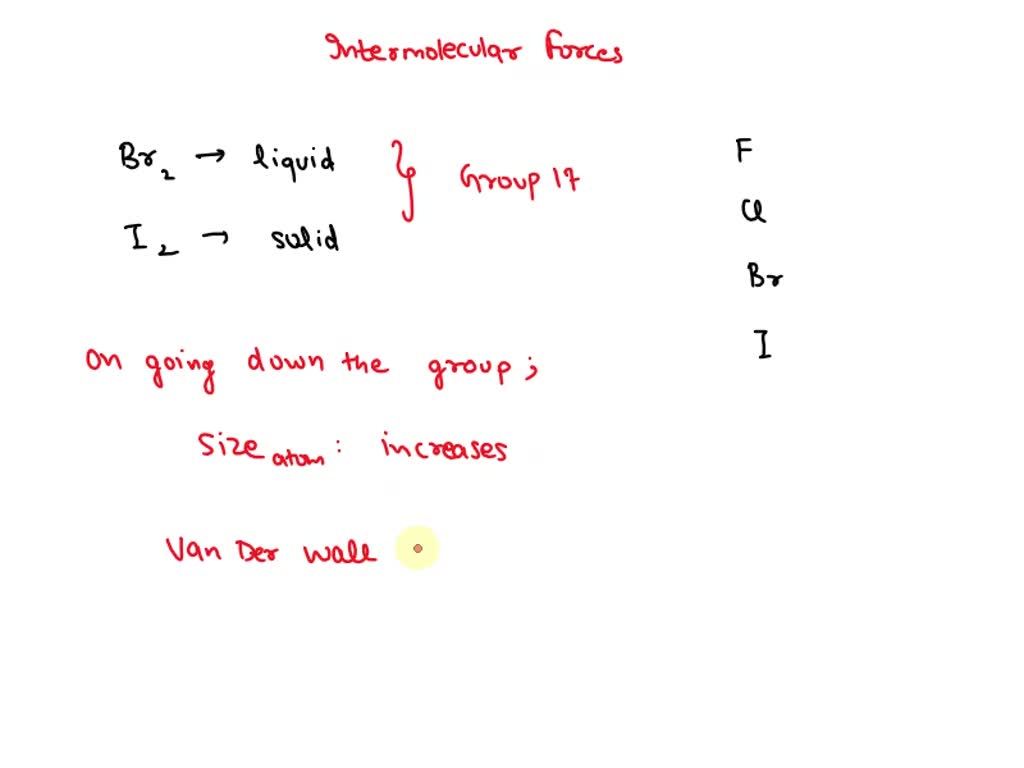 Intermolecular Forces
Br2 → liquid } Group 17
I2 → solid
F
Cl
Br
I
On going down the group ;
Size atom : increases
Van Der wall